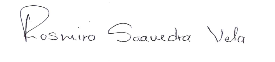 Rosmira Saavedra Vela